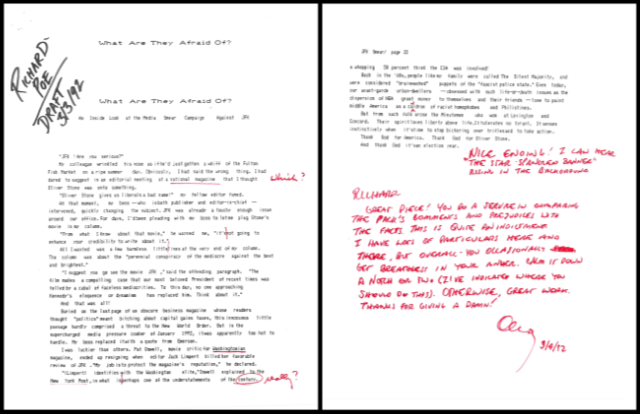 RICHARD
POE
DRAFT
3/3/92
What Are They Afraid Of?
What Are They Afraid Of?
An Inside Look at the Media Smear Campaign Against JFK
"JFK? Are you serious?"
My colleague wrinkled his nose as if he'd just gotten a whiff of the Fulton
Fish Market on a ripe summer day. Obviously, I had said the wrong thing. I had
dared to suggest in an editorial meeting of a national magazine that I thought
Which?
Oliver Stone was onto something.
"Oliver Stone gives us liberals a bad name!" my fellow editor fumed.
At that moment, my boss -- who is both publisher and editor-in-chief --
intervened, quickly changing the subject. JFK was already a touchy enough issue
around our office. For days, I'd been pleading with my boss to let me plug Stone's
movie in my column.
"From what I know about that movie," he warned me, "it's not going to
enhance your credibility to write about it."
All I wanted was a few harmless little lines at the very end of my column.
The column was about the "perennial conspiracy of the mediocre against the best
and brightest."
"I suggest you go see the movie JFK," said the offending paragraph. "The
film makes a compelling case that our most beloved President of recent times was
felled by a cabal of faceless mediocrities. To this day, no one approaching
Kennedy's eloquence or dreaminess has replaced him. Think about it."
And that was all!
Buried on the last page of an obscure business magazine whose readers
thought "politics" meant bitching about capital gains taxes, this innocuous little
passage hardly comprised a threat to the New World Order. But in the
supercharged media pressure cooker of January 1992, it was apparently too hot to
handle. My boss replaced it with a quote from Emerson.
I was luckier than others. Pat Dowell, movie critic for Washingtonian
magazine, ended up resigning when editor Jack Limpert killed her favorable
review of JFK. "My job is to protect the magazine's reputation," he declared.
"Limpert identifies with the Washington elite," Dowell explained to the
New York Post, in what is perhaps one of the understatements of the century.
really?
JFK Smear page 20
a whopping 50 percent think the CIA was involved!
Back in the '60s, people like my family were called The Silent Majority, and
were considered "brainwashed" puppets of the "fascist police state." Even today,
our avant-garde urban-dwellers -- obsessed with such life-or-death issues as the
dispersion of NEA grant money to themselves and their friends -- love to paint
middle America as a children of racist homophobes and Philistines.
But from such folk arose the Minutemen who won at Lexington and
Concord. Their spirit loves liberty above life. It tolerates no tyrant. It senses
instinctively when it's time to stop bickering over trifles and to take action.
Thank God for America. Thank God for Oliver Stone.
And thank God it's an election year.
NICE ENDING! I CAN HEAR
"THE STAR SPANGLED BANNER"
RISING IN THE BACKGROUND
RICHARD
GREAT PIECE! YOU DO A SERVICE IN COMPARING
THE PACK'S COMMENTS AND PREJUDICES WITH
THE FACTS. THIS IS QUITE AN INDICTMENT
I HAVE LOTS OF PARTICULARS HERE AND
THERE, BUT OVERALL - YOU OCCASIONALLY
GET BREATHLESS IN YOUR ANGER. CALM IT DOWN
A NOTCH OR TWO (I'VE INDICATED WHERE YOU
SHOULD DO THIS). OTHERWISE, GREAT WORK.
THANKS FOR GIVING A DAMN!
3/4/92